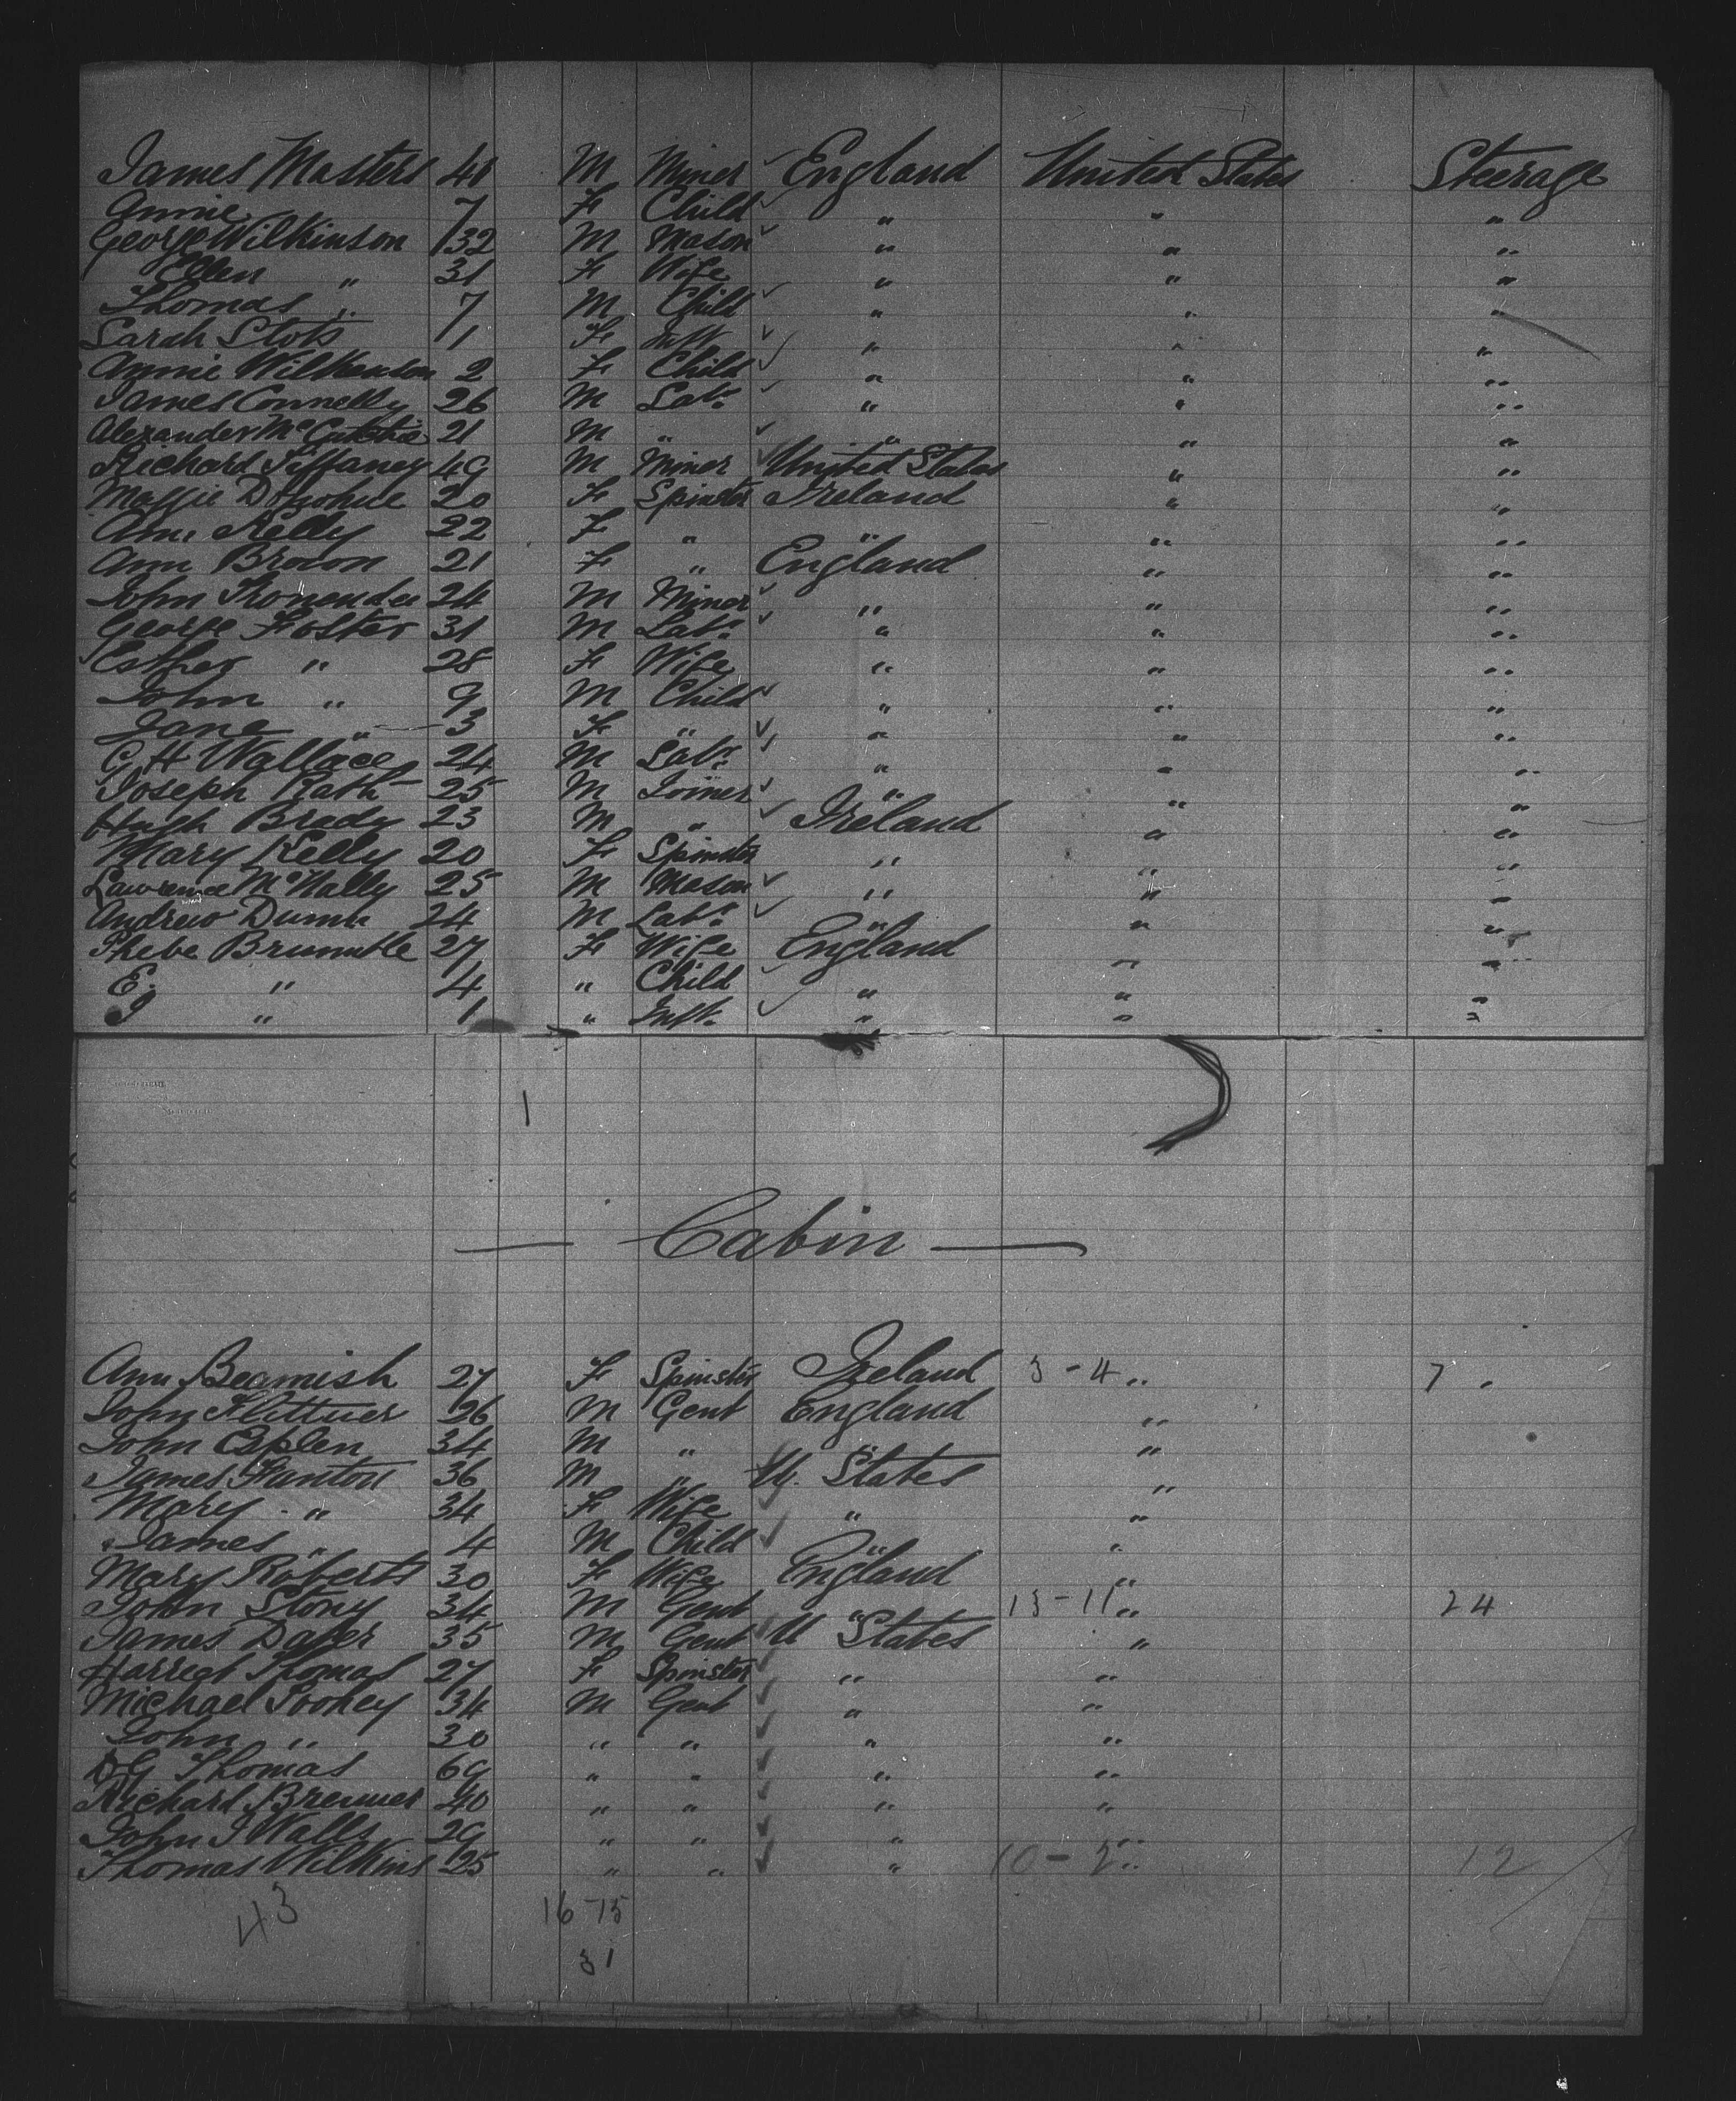 James Masters 41 M Miner England United States Steerage
Annie 7 F Child " " "
George Wilkinson 32 M Mason " " "
Ellen " 31 F Wife " " "
Thomas " 7 M Child " " "
Sarah Stots 1 F Inft " " "
Annie Wilkinson 2 F Child " " "
James Connelly 26 M Labr " " "
Alexander 21 M " " " "
Richard Tiffaney 49 M Miner United States " "
Maggie Donohue 20 F Spinster Ireland " "
Ann Kelly 22 F " " " "
Ann Brown 21 F " England " "
John 24 M Miner " " "
George Foster 31 M Labr " " "
Esther " 28 F Wife " " "
John " 9 M Child " " "
Jane " 3 F " " " "
G H Wallace 24 M Labr " " "
Joseph Rath 25 M Joiner " " "
Hugh Brady 23 M " Ireland " "
Mary Kelly 20 F Spinster " " "
Lawrence McNally 25 M Mason " " "
Andrew 24 M Labr " " "
Phebe Brumble 27 F Wife England " "
E. " 4 " Child " " "
J " 1 " Inft. " " "
— Cabin —
Ann Beamish 27 F Spinster Ireland 3 - 4 " 7 "
John 26 M Gent England "
John Esplen 34 M " " "
James Stanton 36 M " U. States "
Mary " 34 F Wife " "
James " 4 M Child " "
Mary Roberts 30 F Wife England "
John Story 34 M Gent " 13 - 11 " 24
James 35 M Gent U States "
Harriet Thomas 27 F Spinster " "
Michael Toohey 34 M Gent " "
John " 30 " " " "
D G Thomas 69 " " " "
Richard Brewer 40 " " " "
John J Walls 29 " " " "
Thomas Wilkins 25 " " " 10 - 2 " 12
43 16-15
31